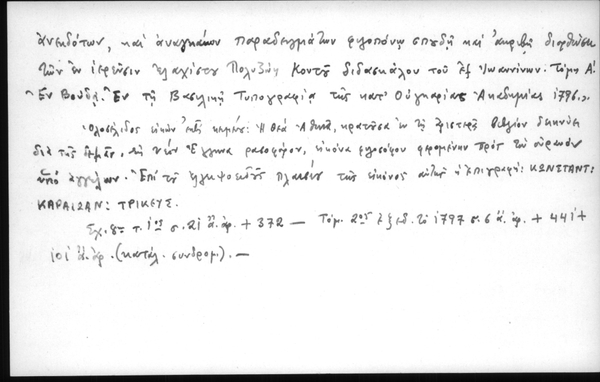 ἀνεκδότων, καὶ ἀναγκαίων παραδειγμάτων φιλοπόνῳ σπουδῇ καὶ ἀκριβεῖ διορθώσει
τῶν ἐν ἱερεῦσιν ἐλαχίστου Πολυζώη Κοντοῦ διδασκάλου τοῦ ἐξ Ἰωαννίνων. Τόμος Α!
Ἐν Βούδᾳ. Ἐν τῇ Βασιλικῇ Τυπογραφίᾳ τῆς κατ' Οὐγγαρίαν Ἀκαδημίας 1796.»
Ὁλοσέλιδος εἰκὼν : Ἡ θεὰ Ἀθηνᾶ, κρατοῦσα ἐν τῇ ἀριστερᾷ βιβλίον δεικνύει
διὰ τῆς δεξιᾶς, Ἕλληνα ρασοφόρον, εἰκόνα φιλοσόφου φερομένην πρὸς τὸν οὐρανὸν
ὑπὸ ἀγγέλων. Ἐπὶ τοῦ πλαισίου τῆς εἰκόνος αὐτῆς ἡ ἐπιγραφή: ΚΩΝΣΤΑΝΤ:
ΚΑΡΑΪΩΑΝ: ΤΡΙΚΕΥΣ.
Σχ. 8ον τ. 1ος σ. 21 ἄ. ἀρ. + 372 — Τόμ. 2ος ἐξεδ. τὸ 1797 σ. 6 ἄ. ἀρ. + 441 +
101 ἄ. ἀρ. (κατάλ. συνδρομ.). —